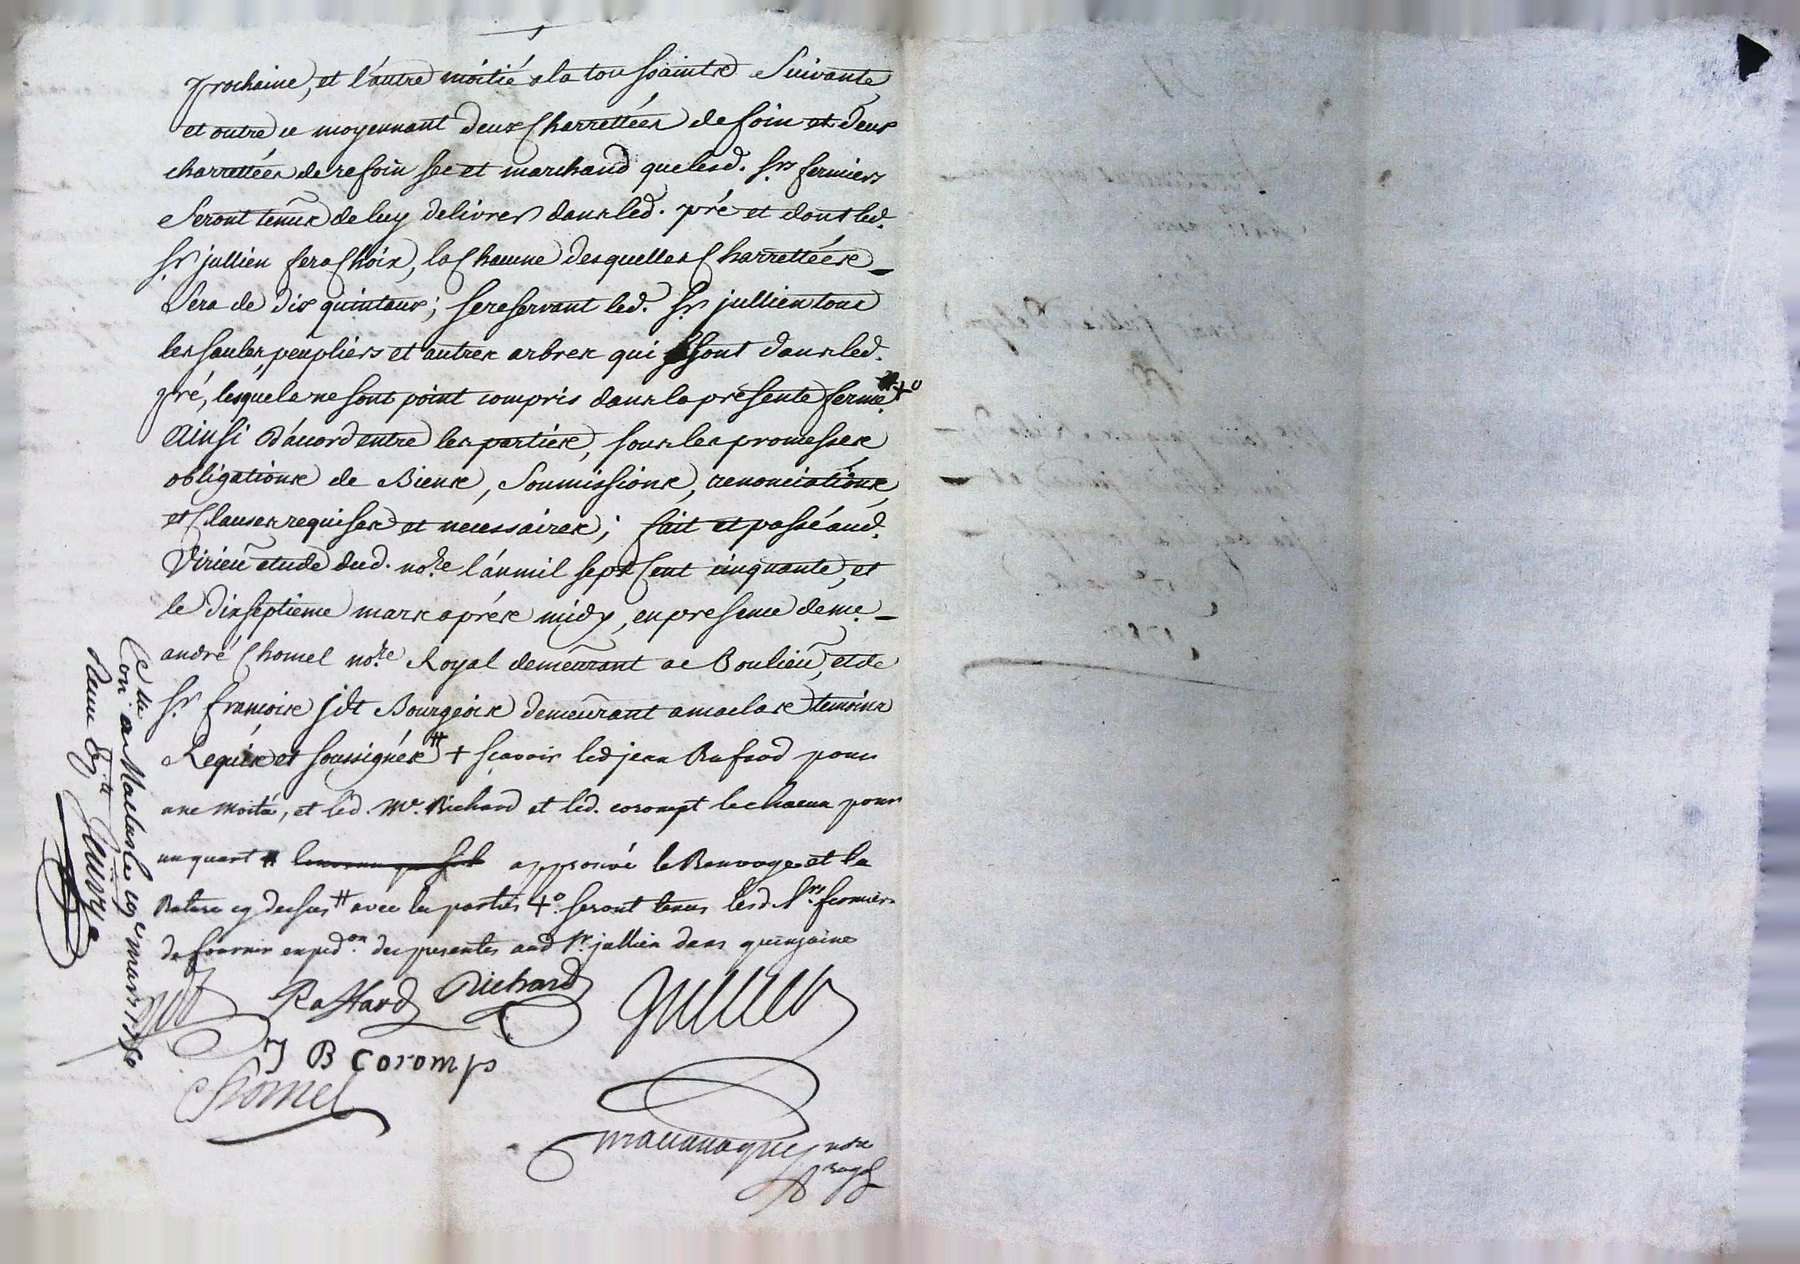 prochaine, et l'autre moitié a la toussaintz suivante,
et outre ce moyennant deux Charrettées de foin et deux
charrettées de refoin sec et marchand que lesd. srs fermiers
seront tenus de luy delivrer dans led. pré et dont led.
sr jullien fera Choix, la Chacune desquelles Charrettées
sera de dix quintaux; se reservant led. sr jullien tous
les saules, peupliers et autres arbres qui sont dans led.
pré, lesquels ne sont point compris dans la présente ferme #4°
Ainsi d'acord entre les parties, sous les promesses
obligations de Biens, Soumissions, renonciations,
et Clauses requises et nécessaires; fait et passé aud.
Virieu étude dud. nore l'an mil sept Cent cinquante, et
le dixseptieme mars aprés midy, en presence de me
andré Chomel nore Royal demeurant a Boulieu, et de
sr francois jdt Bourgeois demeurant a maclas temoins
Requis et soussignés # + sçavoir led jean Raffard pour
une moitié, et led. Me. Richard et led. corompt le chacun pour
un quart # approuvé le Renvoye et la
Rature cy dessus # avec les parties 4° seront tenus lesd. srs fermiers
de fournir expedon. des presentes aud sr. jullien dans quinzaine
Raffard Richard Jullien
J B Coromp
Chomel
mauanaque nore
Royal
Con a Mallas le 19e mars 1750